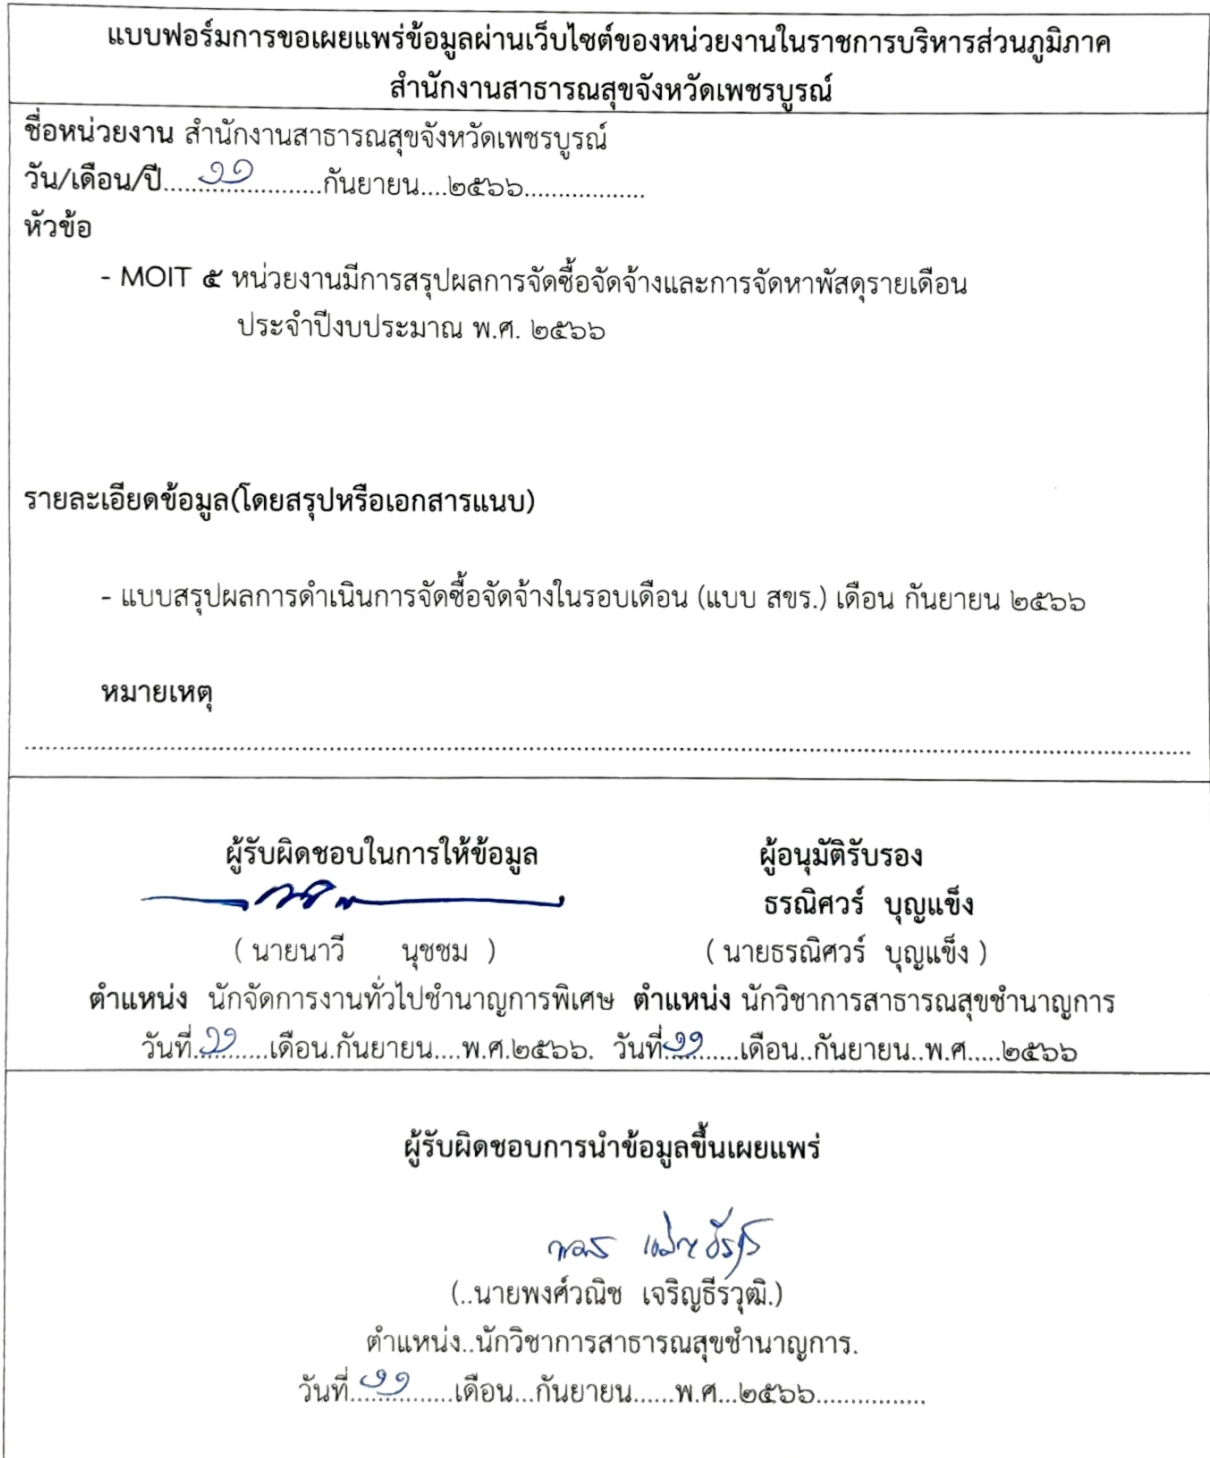 แบบฟอร์มการขอเผยแพร่ข้อมูลผ่านเว็บไซต์ของหน่วยงานในราชการบริหารส่วนภูมิภาค
สำนักงานสาธารณสุขจังหวัดเพชรบูรณ์
ชื่อหน่วยงาน สำนักงานสาธารณสุขจังหวัดเพชรบูรณ์
วัน/เดือน/ปี.....๑๑............กันยายน....๒๕๖๖..................
หัวข้อ
- MOIT ๕ หน่วยงานมีการสรุปผลการจัดซื้อจัดจ้างและการจัดหาพัสดุรายเดือน
ประจำปีงบประมาณ พ.ศ. ๒๕๖๖
รายละเอียดข้อมูล(โดยสรุปหรือเอกสารแนบ)
- แบบสรุปผลการดำเนินการจัดซื้อจัดจ้างในรอบเดือน (แบบ สขร.) เดือน กันยายน ๒๕๖๖
หมายเหตุ
ผู้รับผิดชอบในการให้ข้อมูล ผู้อนุมัติรับรอง
ธรณิศวร์ บุญแข็ง
( นายนาวี นุชชม ) ( นายธรณิศวร์ บุญแข็ง )
ตำแหน่ง นักจัดการงานทั่วไปชำนาญการพิเศษ ตำแหน่ง นักวิชาการสาธารณสุขชำนาญการ
วันที่.๑๑.......เดือน.กันยายน....พ.ศ.๒๕๖๖. วันที่.๑๑......เดือน..กันยายน..พ.ศ.....๒๕๖๖
ผู้รับผิดชอบการนำข้อมูลขึ้นเผยแพร่
(..นายพงศ์วณิช เจริญธีรวุฒิ.)
ตำแหน่ง..นักวิชาการสาธารณสุขชำนาญการ.
วันที่.๑๑.......เดือน...กันยายน......พ.ศ...๒๕๖๖................